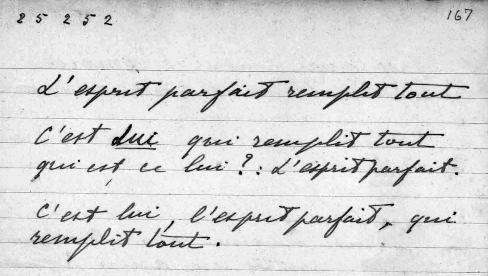 25252
167
L'esprit parfait remplit tout
C'est lui qui remplit tout
qui est ce lui ?: L'esprit parfait.
C'est lui, l'esprit parfait, qui
remplit tout.